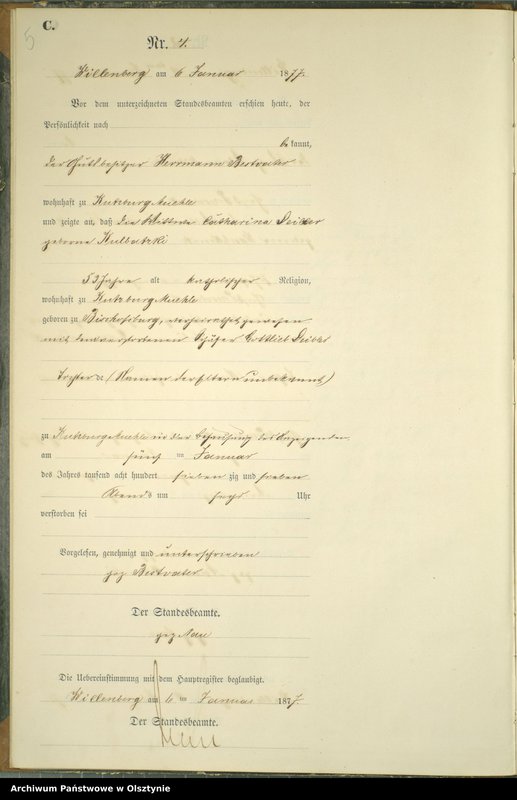 C.
5
Nr. 4.
Willenberg am 6 Januar 1877.
Vor dem unterzeichneten Standesbeamten erschien heute, der
Persönlichkeit nach
bekannt,
der Gutsbesitzer Herrmann Bestvater
wohnhaft zu Kutzburgmuehle
und zeigte an, daß die Wittwe Catharina
geborne Kulbatzki
53 Jahre alt katholischer Religion,
wohnhaft zu Kutzburgmuehle
geboren zu Bischofsburg, verheirathet gewesen
mit dem verstorbenen Schäfer Gottlieb
Tochter de (Namen der Eltern unbekannt)
zu Kutzburgmuehle in der Behausung des Anzeigenden
am fünf ten Januar
des Jahres tausend acht hundert sieben zig und sieben
Abends um sechs Uhr
verstorben sei
Vorgelesen, genehmigt und unterschrieben
gez Bestvater
Der Standesbeamte.
gez
Die Uebereinstimmung mit dem Hauptregister beglaubigt.
Willenberg am 6 ten Januar 1877.
Der Standesbeamte.
Archiwum Państwowe w Olsztynie